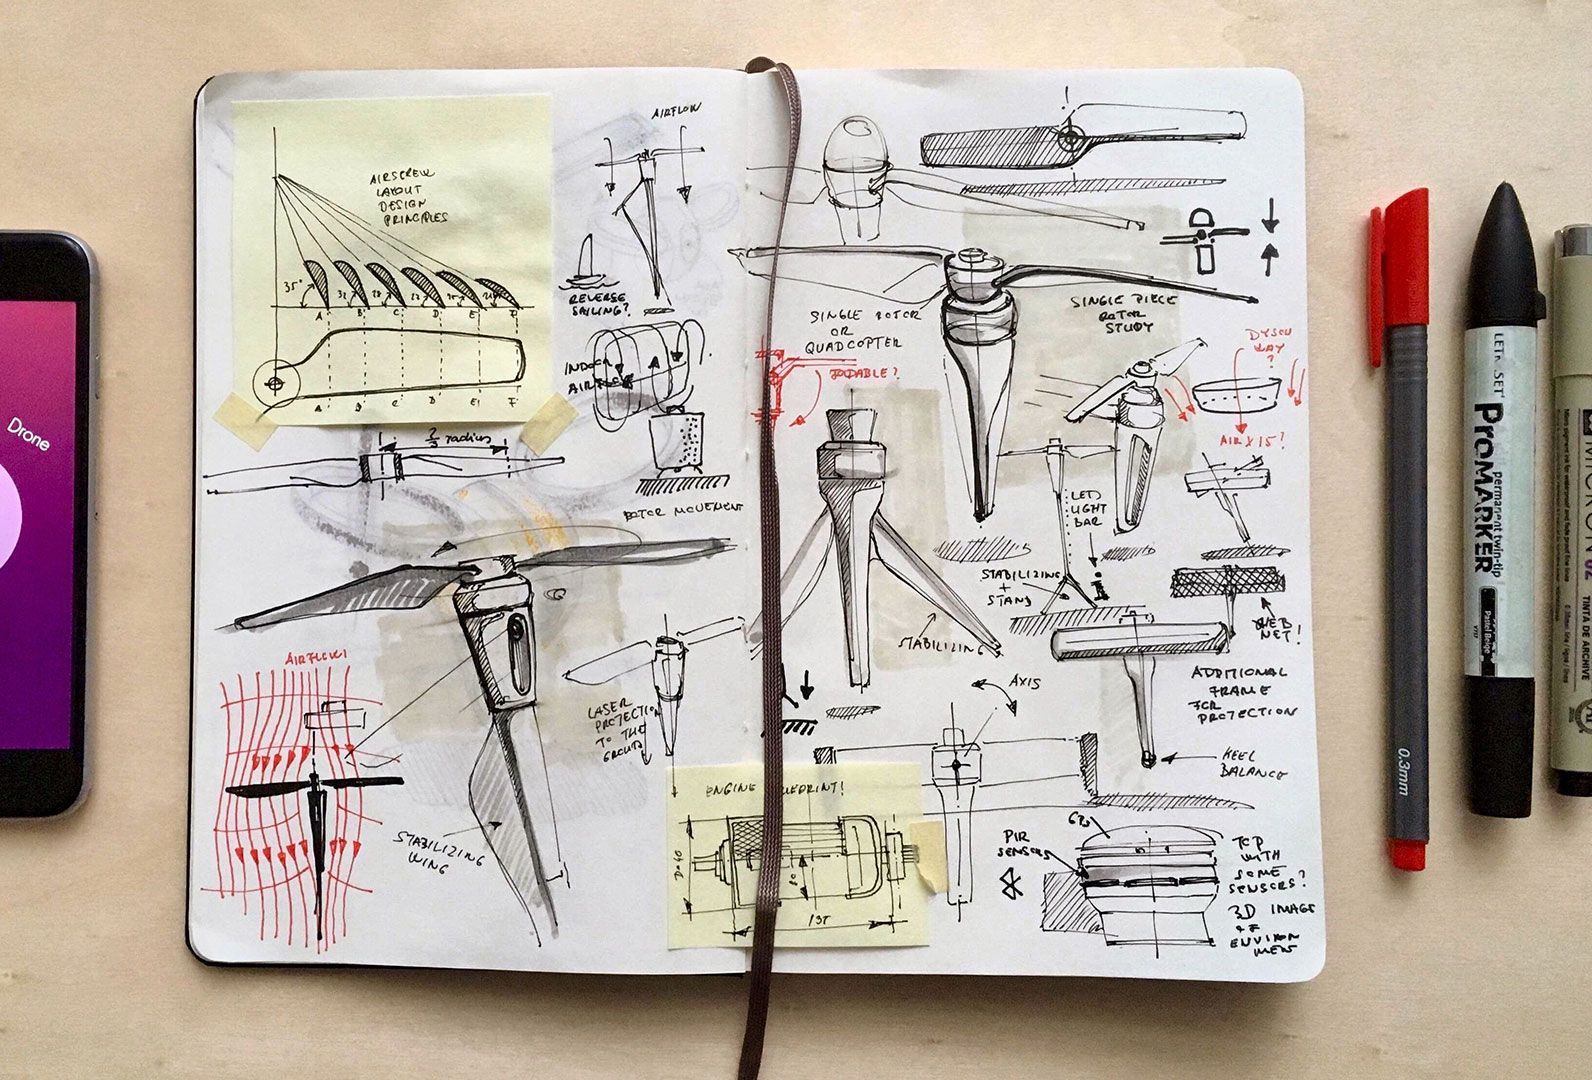 Drone
AIRSCREW
LAYOUT
DESIGN
PRINCIPLES
35°
A B C D E F
A B C D E F
2/3 radius
AIRFLOW
REVERSE
SAILING?
INDOOR
ROTOR MOVEMENT
AIRFLOW
STABILIZING
WING
LASER
PROTECTION
TO THE
GROUND
ENGINE
135
SINGLE ROTOR
OR
QUADCOPTER
FOLDABLE?
SINGLE PIECE
ROTOR
STUDY
DYSON
WAY
?
AIR X 15?
LEDS
LIGHT
BAR
STABILIZING
+
STAND
STABILIZING
WEB
NET!
ADDITIONAL
FRAME
FOR
PROTECTION
AXIS
KEEL
BALANCE
PIR
SENSORS
TOP
WITH
SOME
SENSORS?
3D IMAGE
OF
ENVIRON
MENT
0.3mm
LETRASET
PROMARKER
permanent twin-tip
Pastel Beige
TINTA DE ARCHIVE